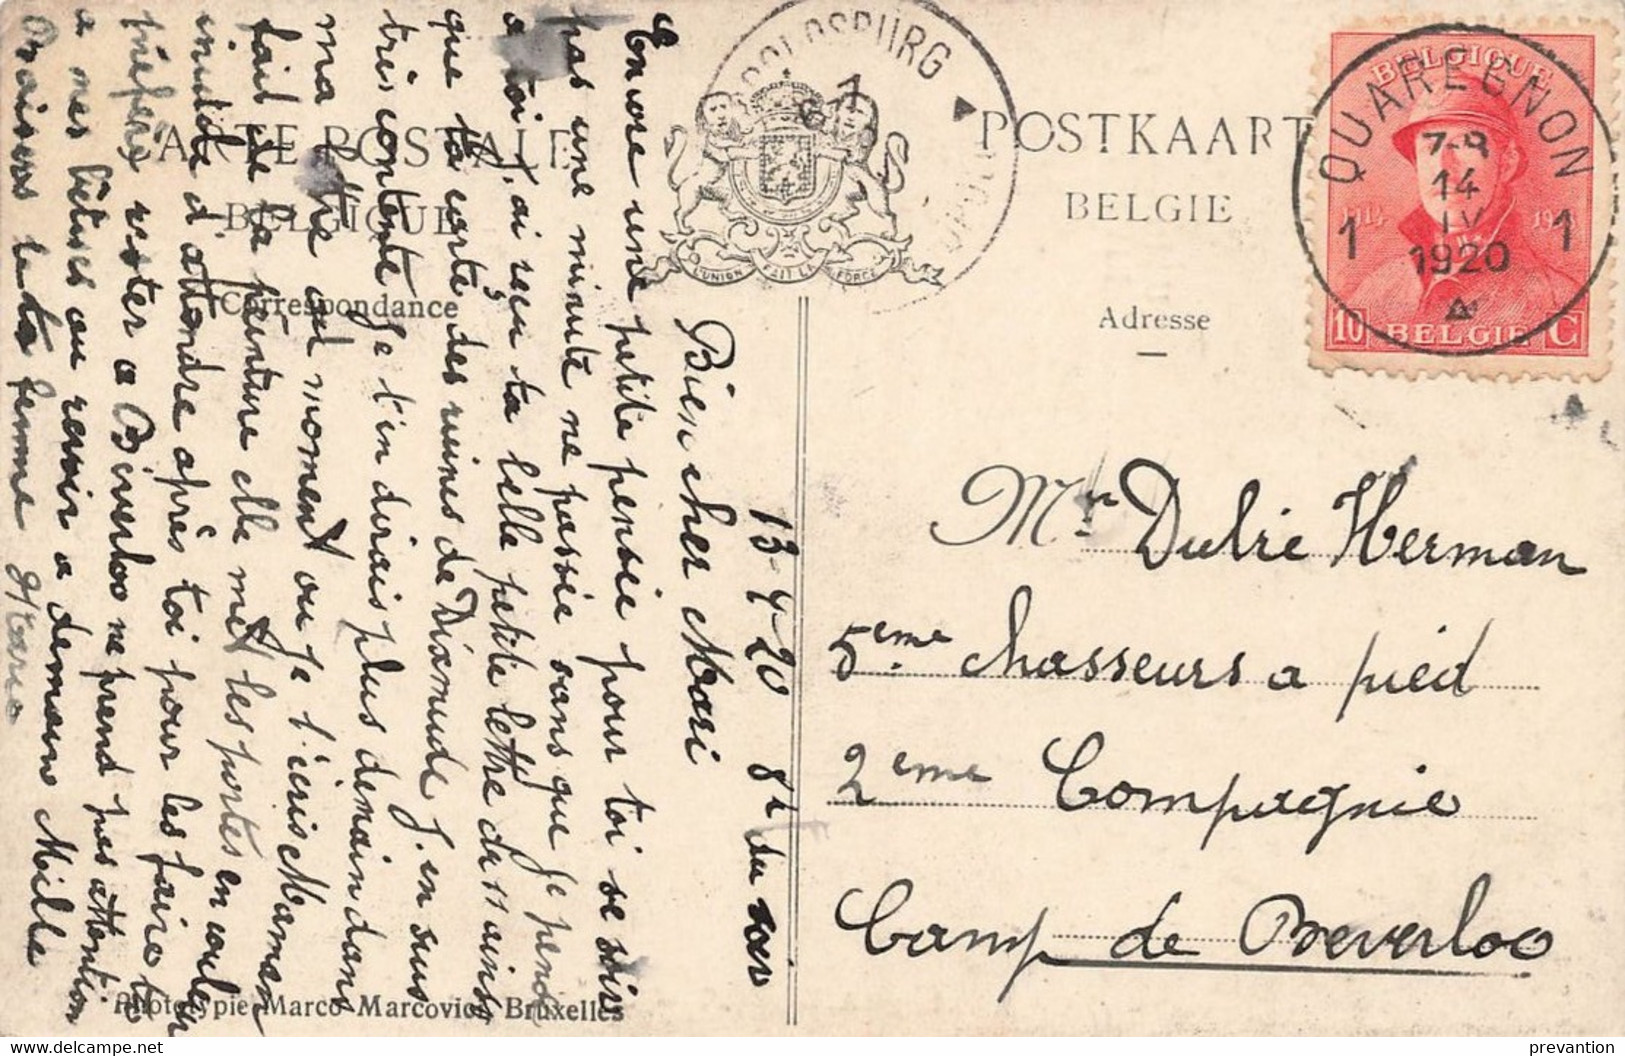 CARTE POSTALE
BELGIQUE
Correspondance
POSTKAART
BELGIE
Adresse
L'UNION FAIT LA FORCE
BOURG-LEOPOLD
LEOPOLDSBURG
QUAREGNON
7-8
14
IV
1920
1 1
BELGIQUE
1914 1918
10 BELGIE C
13-4-20 8h du soir
Bien cher Mari
Encore une petite pensée pour toi se soir
pas une minute ne passée sans que je pense
a toi J'ai reçu ta belle petite lettre du 11 ainsi
que ta carte des ruines de Dixmude J'en suis
très contente Je t'en dirais plus demain dans
ma lettre au moment ou je t'écris Maman
fait de la peinture elle met les portes en couleur
inutile d'attendre après toi pour les faire tu
préfère rester a Beverloo ne prend pas attention
a mes bétises au revoir a demain Mille
Baisers de ta femme Maria
Mr Dulré Herman
5eme chasseurs a pied
2eme Compagnie
Camp de Beverloo
Phototypie Marco Marcovici, Bruxelles
prevantion